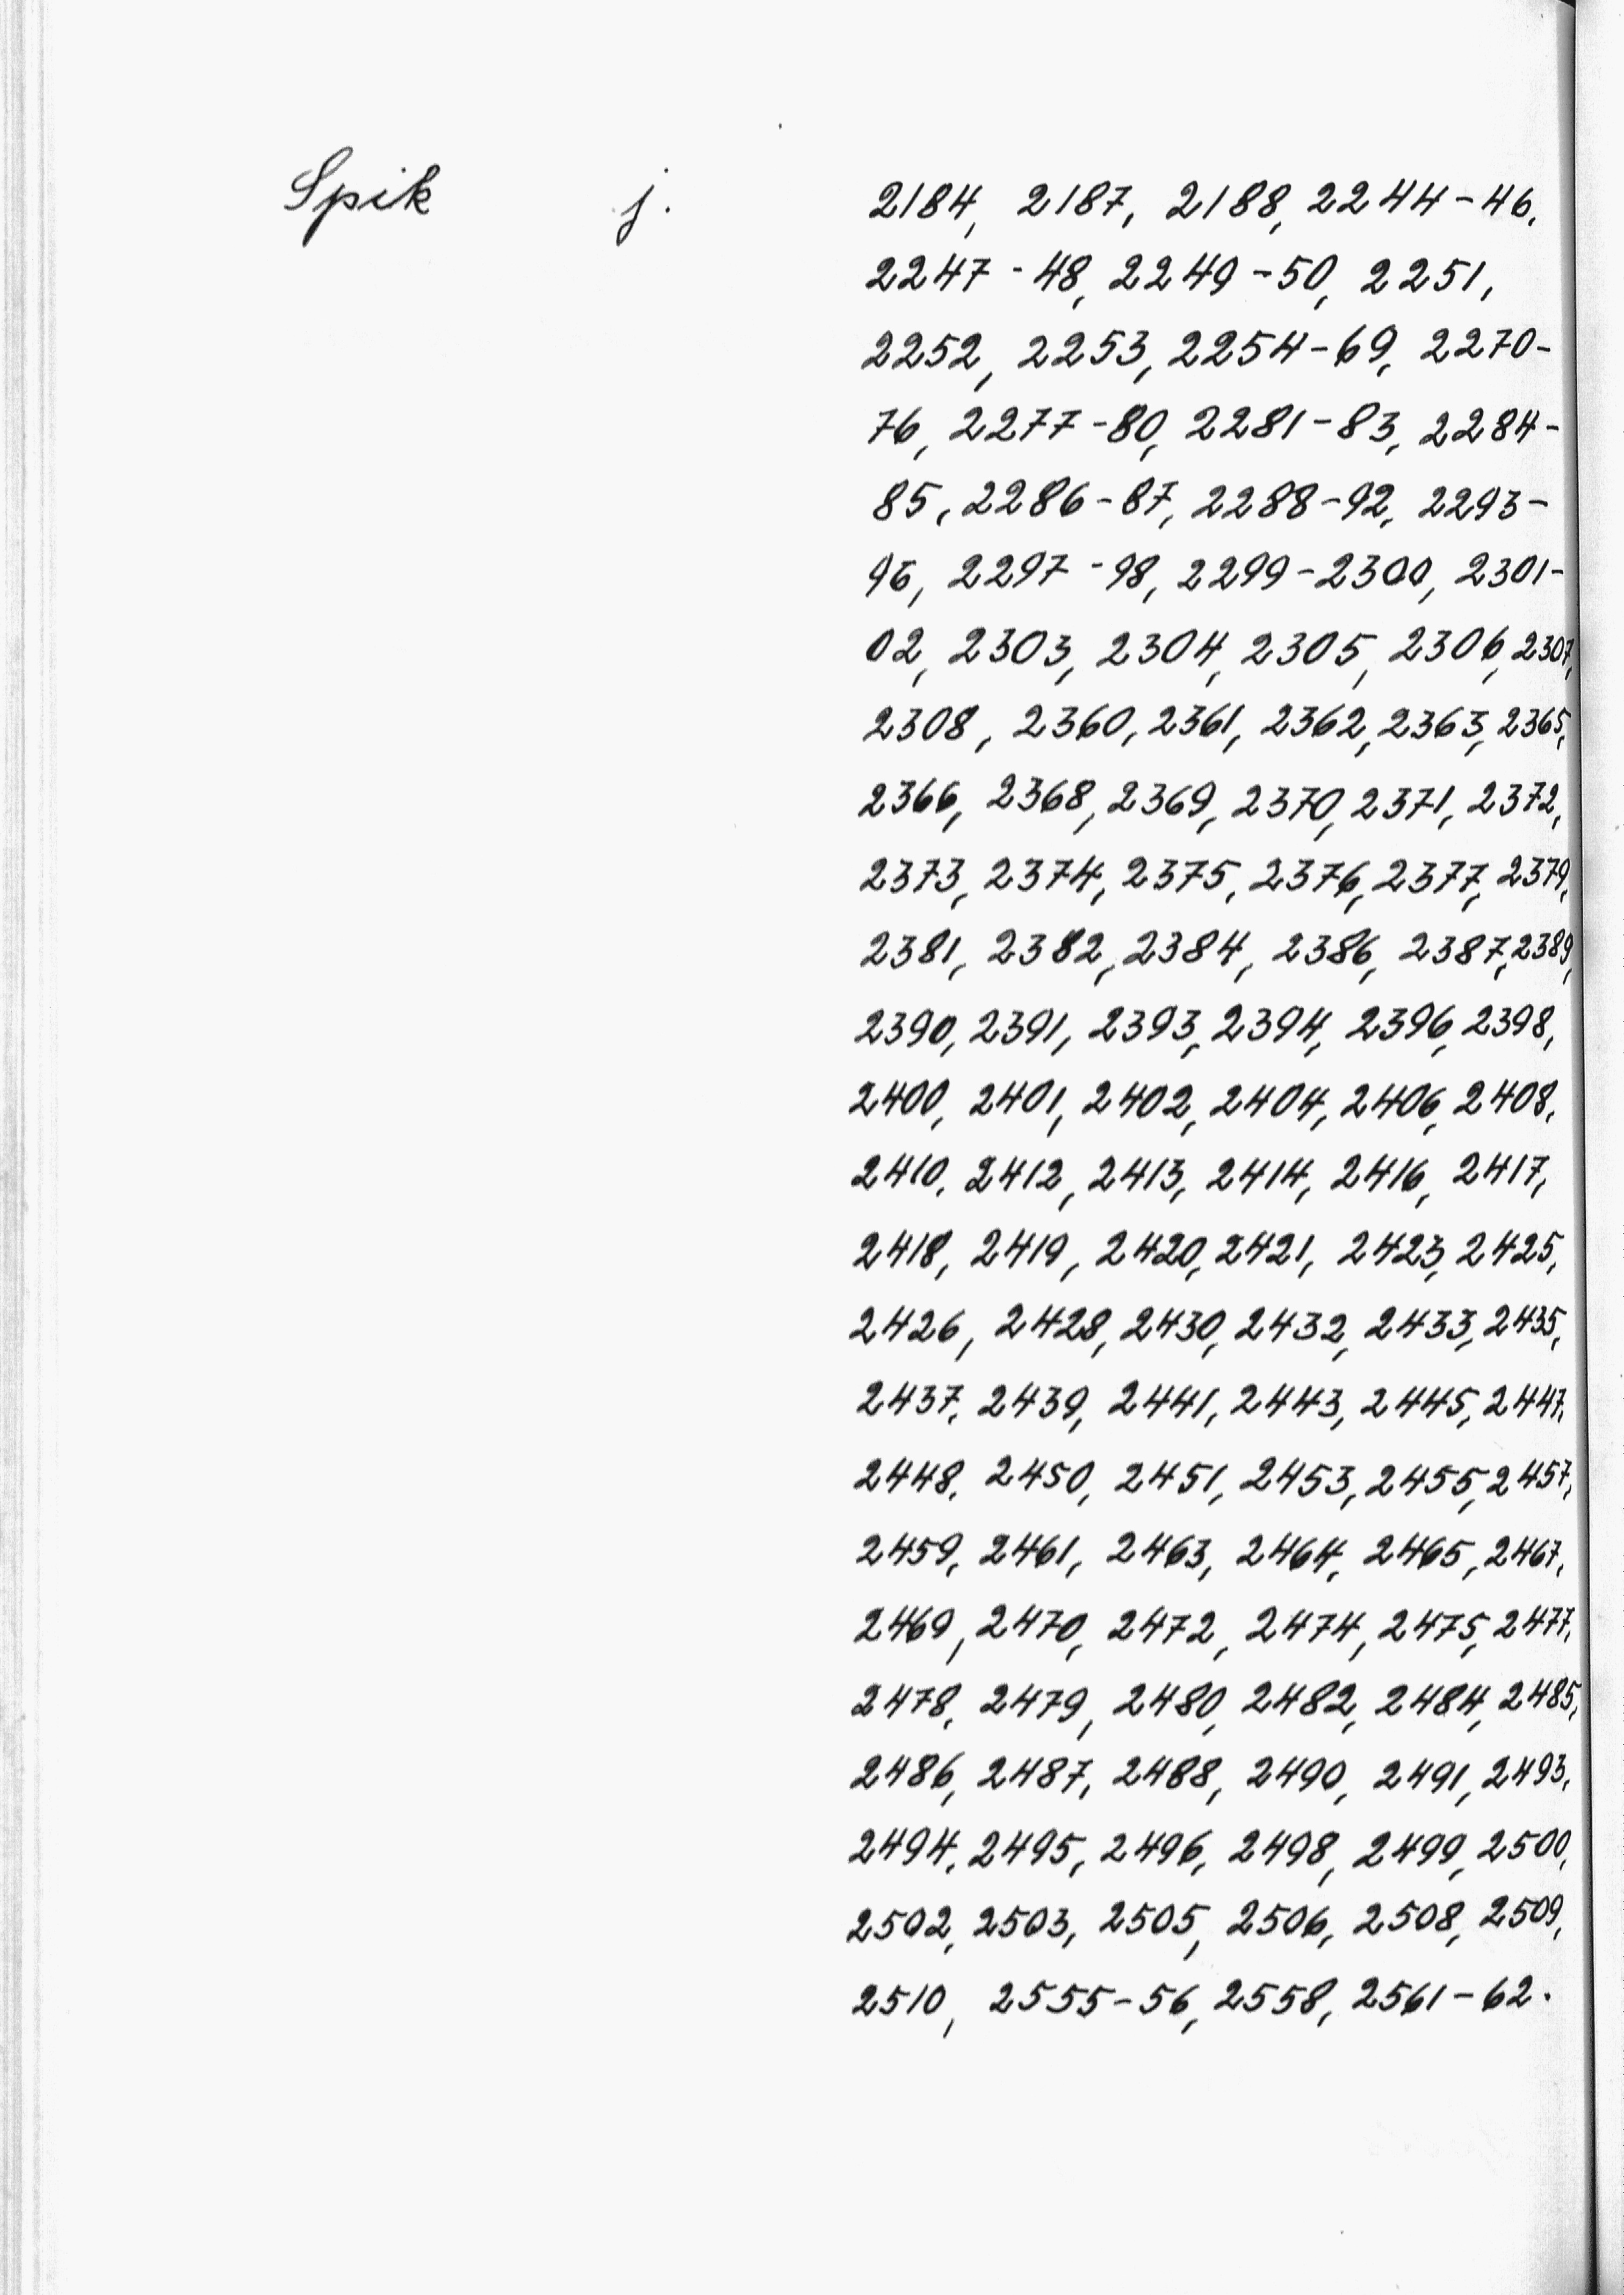 Spik j. 2184, 2187, 2188, 2244-46,
2247-48, 2249-50, 2251,
2252, 2253, 2254-69, 2270-
76, 2277-80, 2281-83, 2284-
85, 2286-87, 2288-92, 2293-
96, 2297-98, 2299-2300, 2301-
02, 2303, 2304, 2305, 2306, 2307,
2308, 2360, 2361, 2362, 2363, 2365,
2366, 2368, 2369, 2370, 2371, 2372,
2373, 2374, 2375, 2376, 2377, 2379,
2381, 2382, 2384, 2386, 2387, 2389,
2390, 2391, 2393, 2394, 2396, 2398,
2400, 2401, 2402, 2404, 2406, 2408,
2410, 2412, 2413, 2414, 2416, 2417,
2418, 2419, 2420, 2421, 2423, 2425,
2426, 2428, 2430, 2432, 2433, 2435,
2437, 2439, 2441, 2443, 2445, 2447,
2448, 2450, 2451, 2453, 2455, 2457,
2459, 2461, 2463, 2464, 2465, 2467,
2469, 2470, 2472, 2474, 2475, 2477,
2478, 2479, 2480, 2482, 2484, 2485,
2486, 2487, 2488, 2490, 2491, 2493,
2494, 2495, 2496, 2498, 2499, 2500,
2502, 2503, 2505, 2506, 2508, 2509,
2510, 2555-56, 2558, 2561-62.